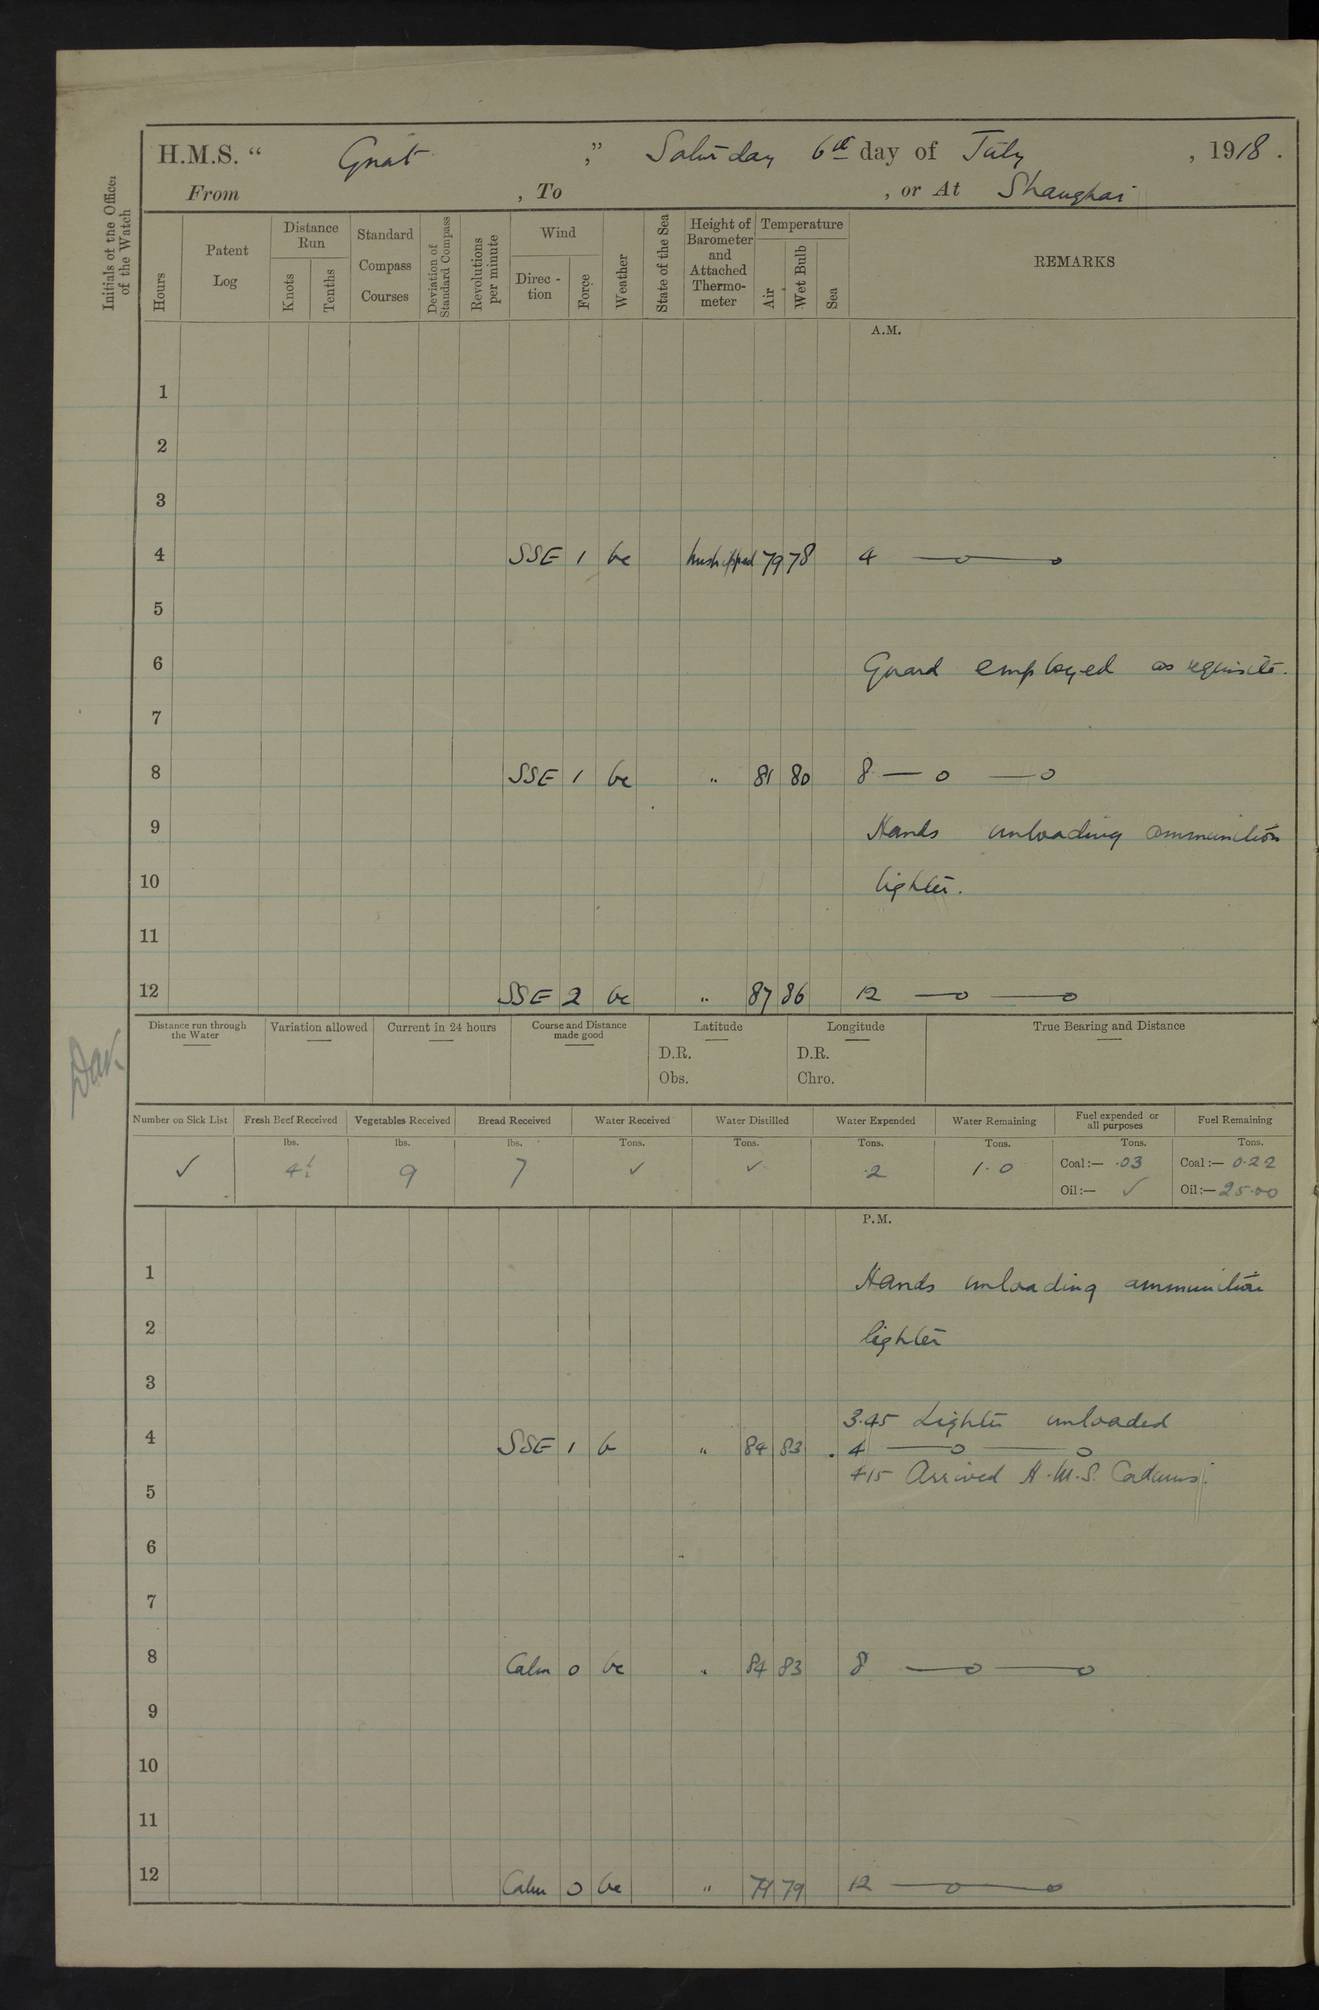 H.M.S. “ Gnat ,” Saturday 6th day of July , 1918 .
From , To , or At Shanghai
Initials of the Officer of the Watch
Hours
Patent Log
Distance Run
Knots
Tenths
Standard Compass Courses
Deviation of Standard Compass
Revolutions per minute
Wind
Direc - tion
Force
Weather
State of the Sea
Height of Barometer and Attached Thermo- meter
Temperature
Air
Wet Bulb
Sea
REMARKS
A.M.
1
2
3
4 SSE 1 bc unshipped 79 78 4 —o —o
5
6 Guard employed as requisite.
7
8 SSE 1 bc " 81 80 8 — o — o
9 Hands unloading ammunition
10 lighter.
11
12 SSE 2 bc " 87 86 12 —o —o
Distance run through the Water
Variation allowed
Current in 24 hours
Course and Distance made good
Latitude
D.R.
Obs.
Longitude
D.R.
Chro.
True Bearing and Distance
Number on Sick List
Fresh Beef Received
Vegetables Received
Bread Received
Water Received
Water Distilled
Water Expended
Water Remaining
Fuel expended or all purposes
Fuel Remaining
lbs. lbs. lbs. Tons. Tons. Tons. Tons. Tons. Tons.
✓ 4½ 9 7 ✓ ✓ ·2 1·0 Coal:— ·03 Coal:— 0·22
Oil:— ✓ Oil:— 25·00
P.M.
1 Hands unloading ammunition
2 lighter
3
3.45 Lighter unloaded
4 SSE 1 b " 84 83 4 —o —o
415 Arrived H.M.S. Cadmus.
5
6
7
8 Calm 0 bc " 84 83 8 —o —o
9
10
11
12 Calm 0 bc " 79 79 12 —o —o